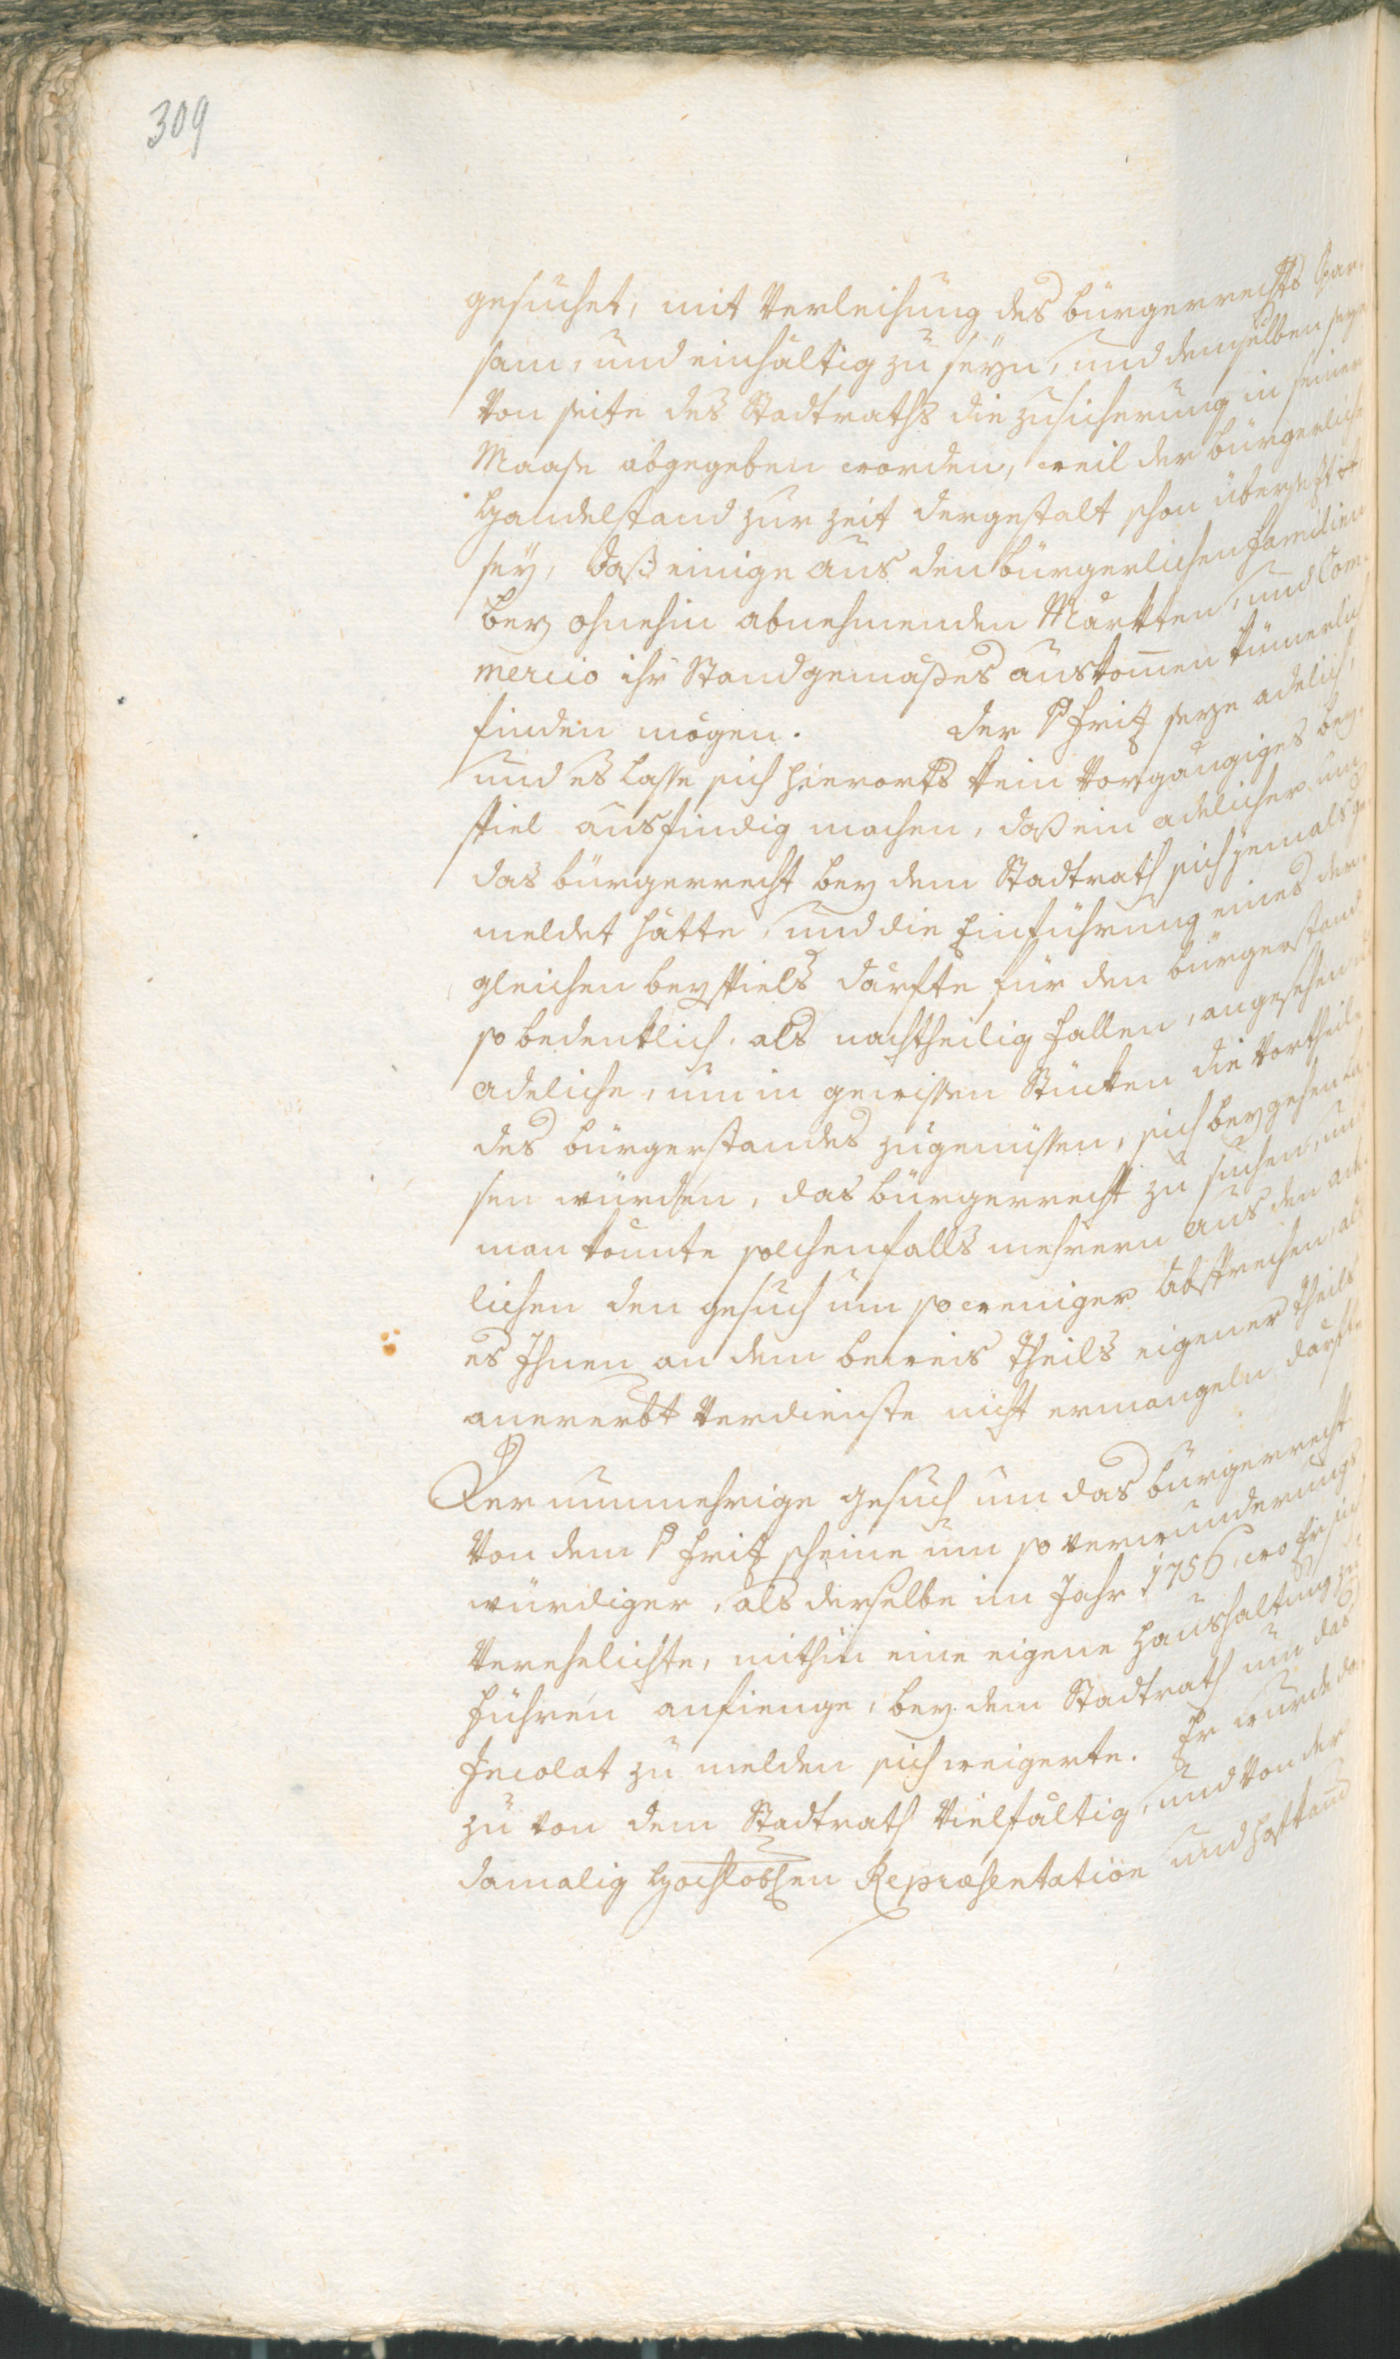 309
gesuchet, mit Verleihung des bürgerrechts Spar-
sam, und einhältig zu seyn, und demselben seye
Von seite des Stadtraths die zusicherung in seiner
Maase abgegeben worden, weil der bürgerliche
Handelstand zur zeit dergestalt schon übersezt
sey, daß einige aus den bürgerlichen familien
bey ohnehin abnehmenden Märkten, und Com-
mercio ihr Standgemaßes auskom̄en kümerlich
finden mögen. der P Friz seye adelich,
und es lasse sich hierorts kein Vorgängiges bey-
spiel ausfindig machen, daß ein adelicher um
das bürgerrecht bey dem Stadtrath sich jemals ge-
meldet hätte, und die Einführung eines der-
gleichen beyspiels därfte für den bürgerstand
so bedenklich, als nachtheilig fallen, angesehen
adeliche, um in gewissen Stücken die Vortheile
des bürgerstandes zugenüssen, sich beygehen la-
sen würden, das bürgerrecht zu suchen, und
man könnte solchenfalls mehrern aus den ade-
lichen den gesuch um so weniger absprechen, als
es Ihnen an dem beweis theils eigener theils
anererbt Verdienste nicht ermangeln därfte
Der nunmehrige gesuch um das bürgerrecht
Von dem P Friz scheine um so verwunderungs
würdiger, als derselbe im Jahr 1756, wo Er sich
Verehelichte, mithin eine eigene haushaltung zu
führen anfienge, bey dem Stadtrath um das
Incolat zu melden sich weigerte. Er wurde da-
zu von dem Stadtrath Vielfältig, und Von der
damalig Hochlobhen Repraesentation und Hofkam̄